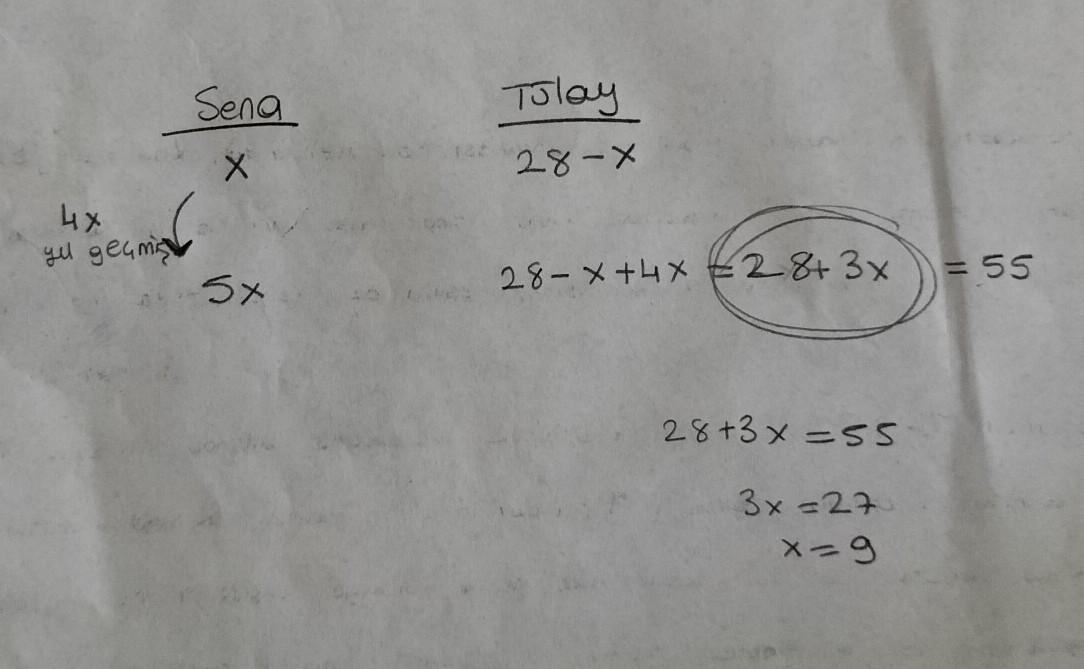 Sena
Tülay
x
28-x
4x
yıl geçmiş
5x
28-x+4x=28+3x=55
28+3x=55
3x=27
x=9